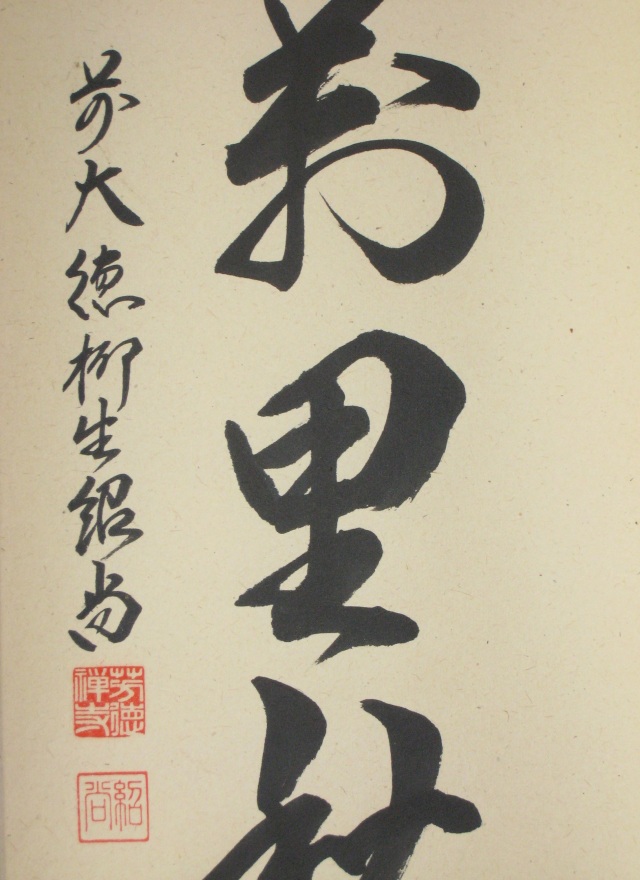 萬里
前大徳柳生紹尚
芳徳
禅寺
紹
尚